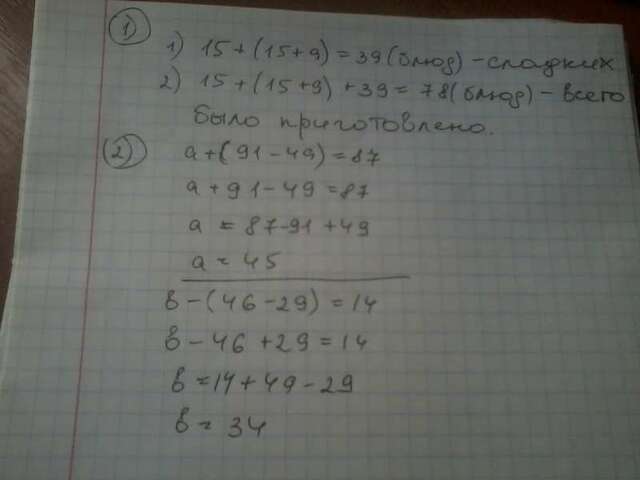 1
1) 15+(15+9)=39(блюд)-сладких
2) 15+(15+9)+39=78(блюд)-всего
было приготовлено.
(2) a+(91-49)=87
a+91-49=87
a=87-91+49
a=45
в-(46-29)=14
в-46+29=14
в=14+49-29
в=34